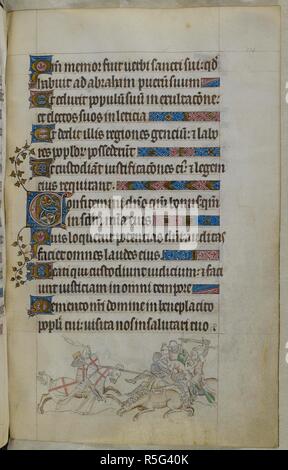 Qm̄ memor fuit verbi sancti sui: qd̄
habuit ad abraham puerū suum
Et eduxit populū suū in exultacōne: 
et electos suos in leticia
Et dedit illis regiones genciū: et labores
poploꝝ possederūt
custodiant iustificacōnes eiꝰ: et legem
eius requirant.
Confitemini dn̄o qm̄ bonus: qm̄
in sc̄lm mīa eius
Quis loquetur potencias dn̄i: auditas
faciet omnes laudes eius
Beati qui custodiunt iudicium: et faciunt
iusticiam in omni tempore
Memento nr̄i domine in beneplacito
popli tui: visita nos in salutari tuo
alamy
R5G40K